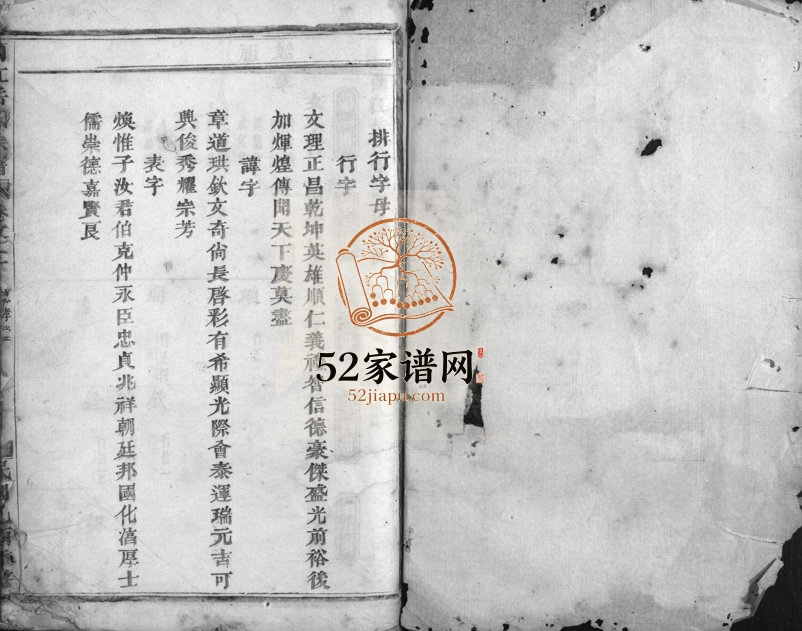 排行字母
行字
文理正昌乾坤英雄順仁義禮智信德豪傑盛光前裕後
加煇煌傳聞天下慶莫盡
諱字
章道珙欽文奇尙長啓彩有希顯光際會泰運瑞元吉可
興俊秀耀宗芳
表字
煥惟子汝君伯克仲永臣忠貞兆祥朝廷邦國化酒厚士
儒崇德嘉賢良
52家谱网
52jiapu.com